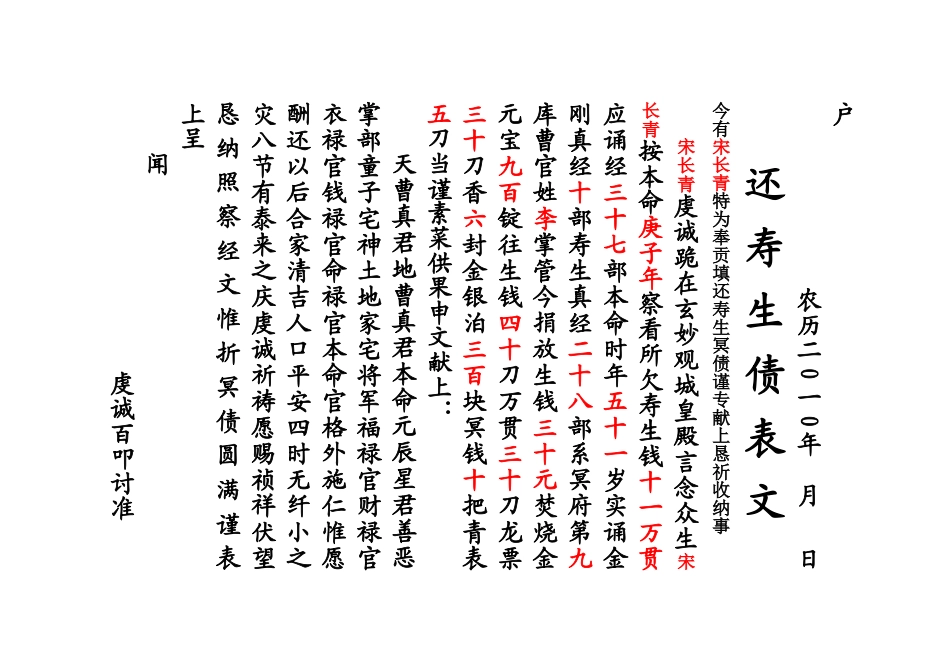 户
农历二〇一〇年 月 日
还寿生债表文
今有宋长青特为奉贡填还寿生冥债谨专献上恳祈收纳事
宋长青虔诚跪在玄妙观城皇殿言念众生宋
长青按本命庚子年察看所欠寿生钱十一万贯
应诵经三十七部本命时年五十一岁实诵金
刚真经十部寿生真经二十八部系冥府第九
库曹官姓李掌管今捐放生钱三十元焚烧金
元宝九百锭往生钱四十刀万贯三十刀龙票
三十刀香六封金银泊三百块冥钱十把青表
五刀当谨素菜供果申文献上：
天曹真君地曹真君本命元辰星君善恶
掌部童子宅神土地家宅将军福禄官财禄官
衣禄官钱禄官命禄官本命官格外施仁惟愿
酬还以后合家清吉人口平安四时无纤小之
灾八节有泰来之庆虔诚祈祷愿赐祯祥伏望
恳纳照察经文惟折冥债圆满谨表
上呈
闻
虔诚百叩讨准